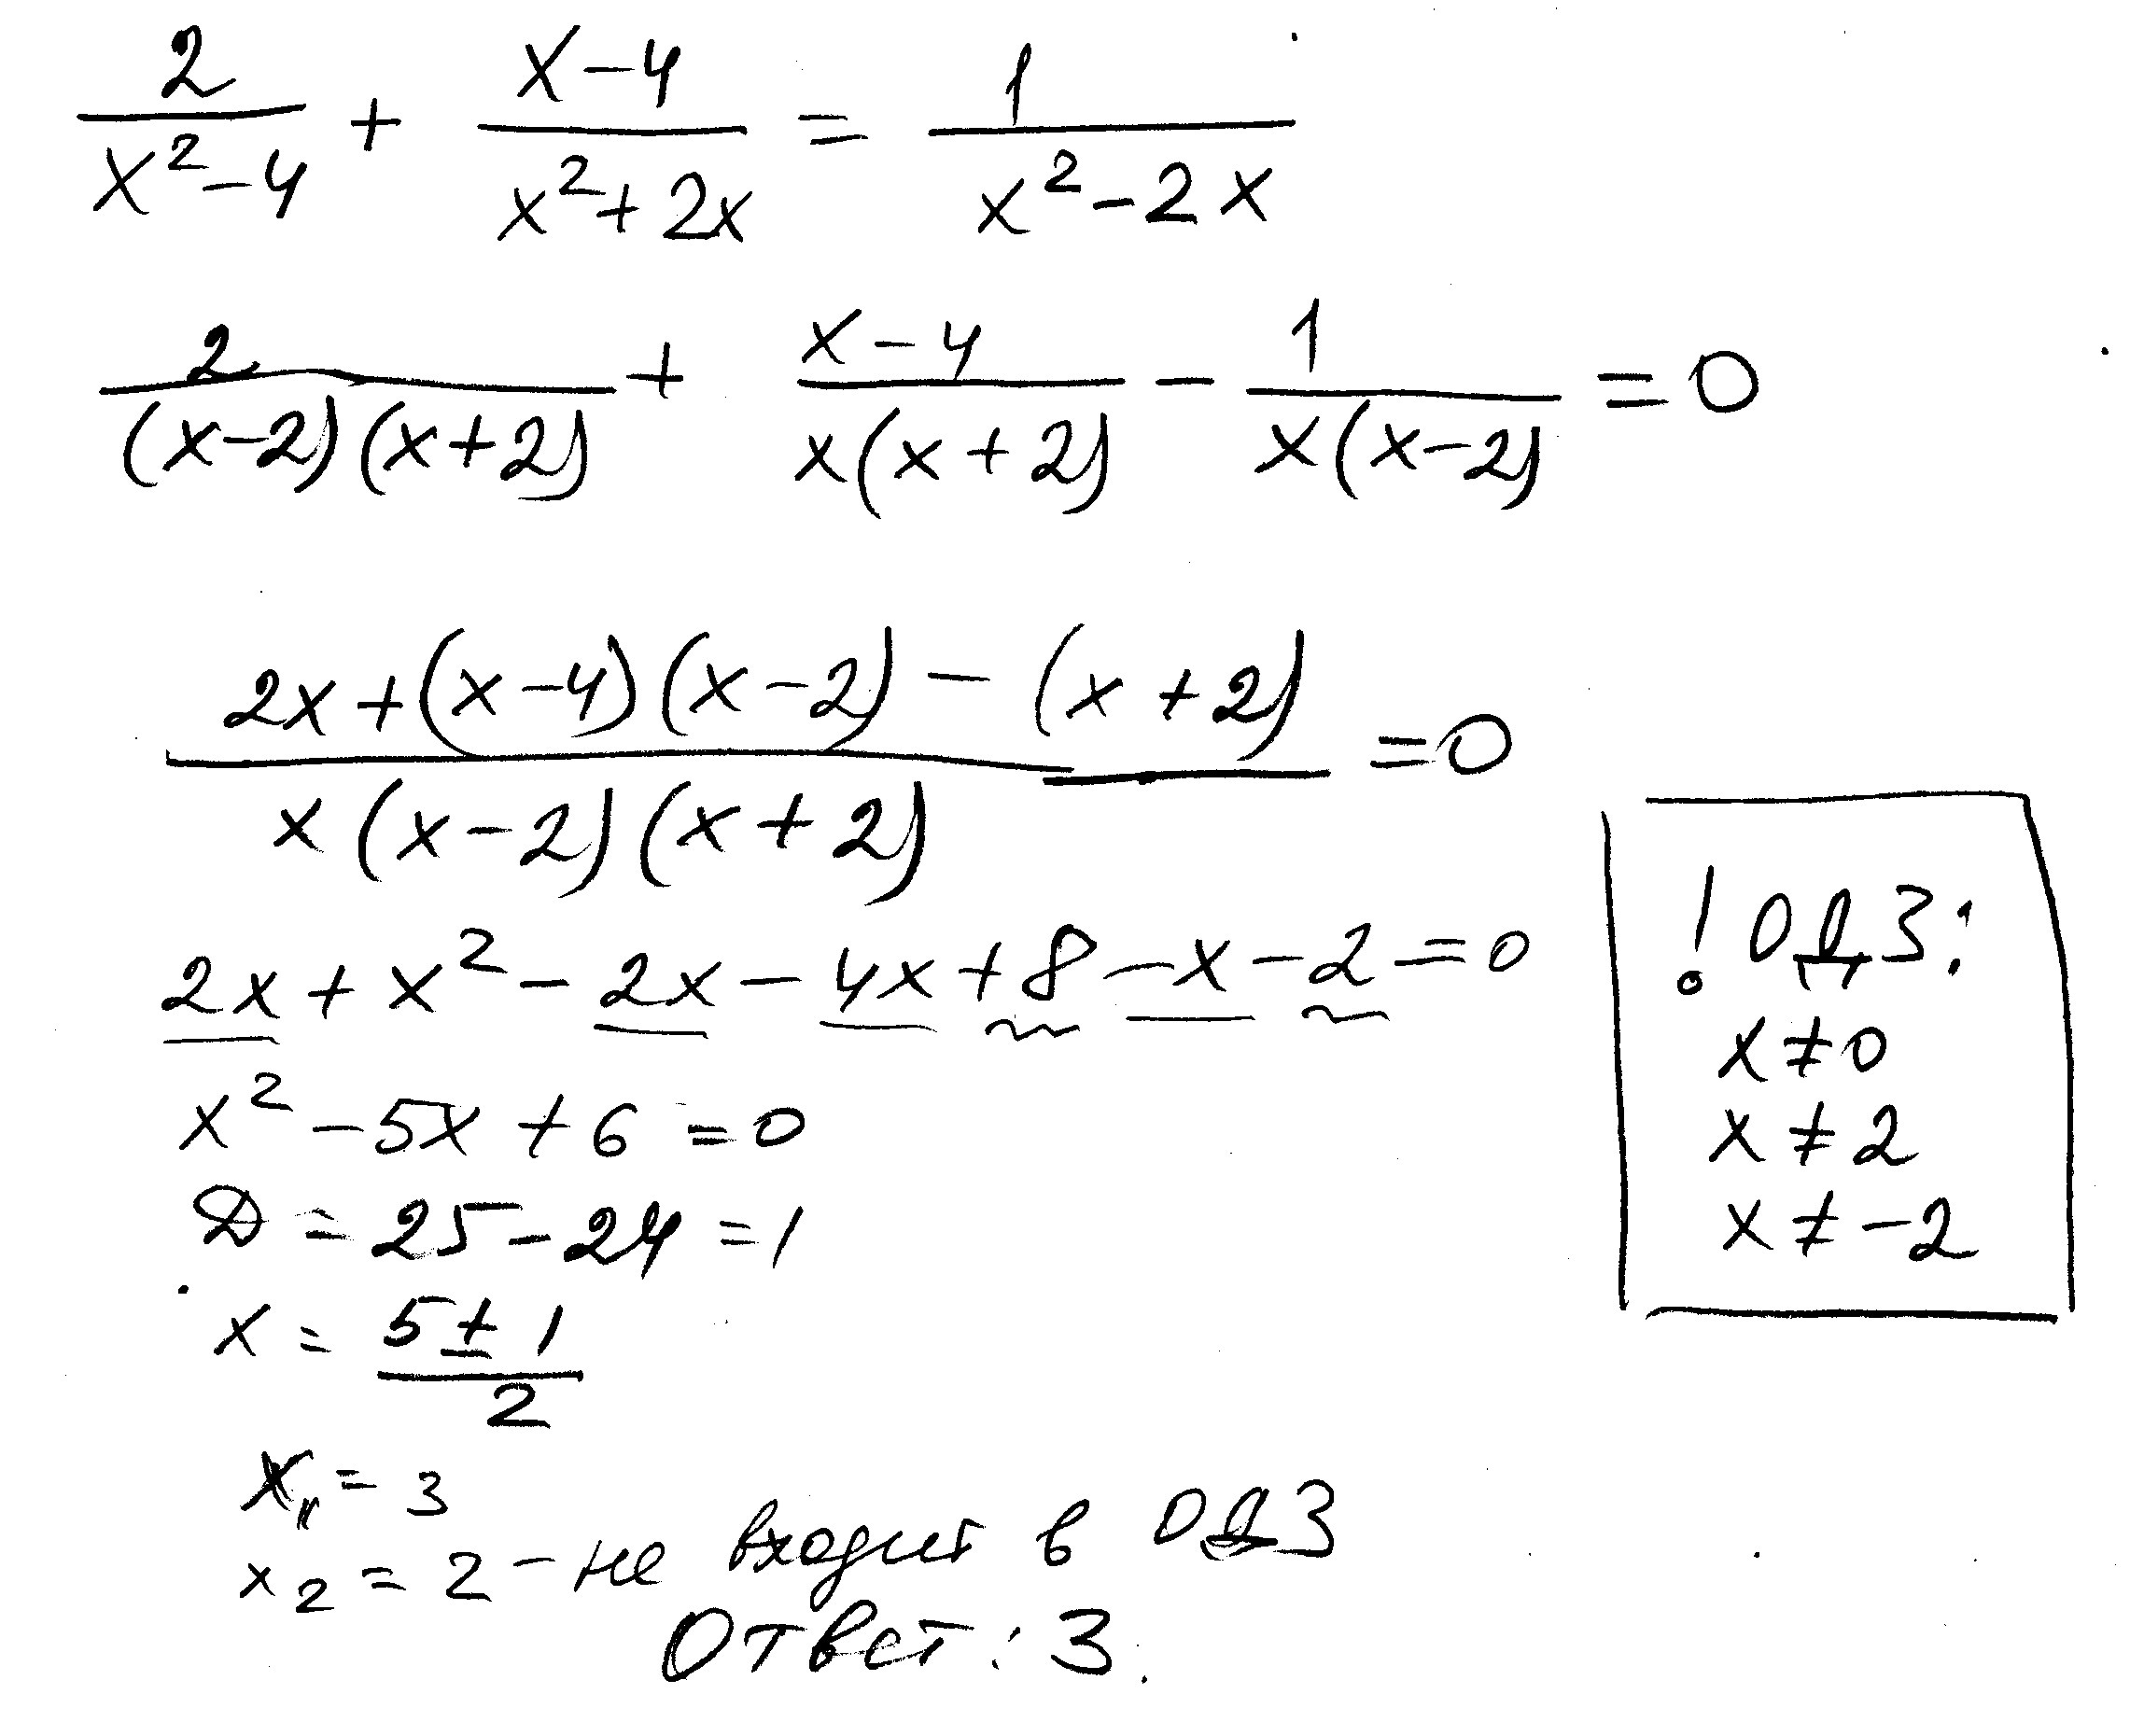 2/(x²-4) + (x-4)/(x²+2x) = 1/(x²-2x)
2/((x-2)(x+2)) + (x-4)/(x(x+2)) - 1/(x(x-2)) = 0
(2x+(x-4)(x-2)-(x+2))/(x(x-2)(x+2)) = 0
2x + x² - 2x - 4x + 8 - x - 2 = 0
x² - 5x + 6 = 0
D = 25 - 24 = 1
x = (5 ± 1)/2
x₁ = 3
x₂ = 2 - не входит в ОДЗ
Ответ: 3.
! ОДЗ:
x ≠ 0
x ≠ 2
x ≠ -2